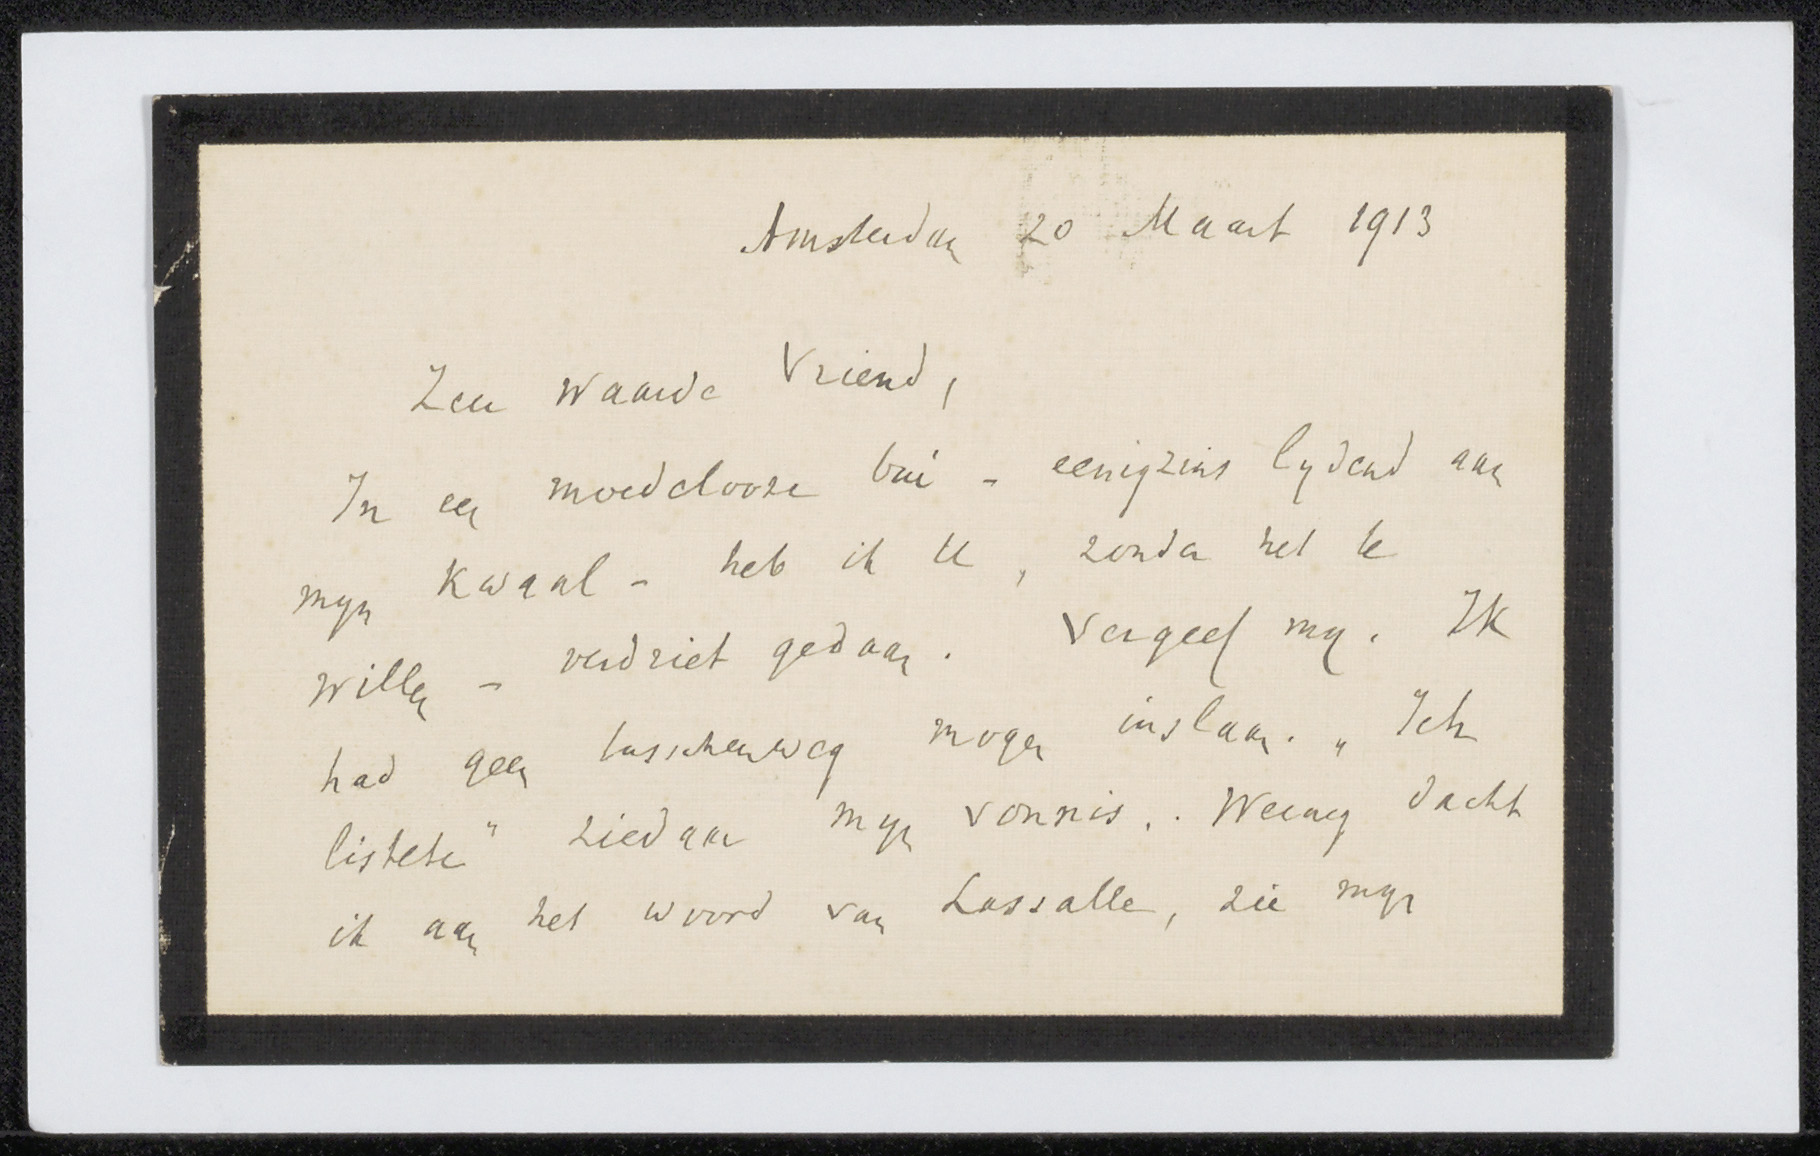 Amsterdam 20 Maart 1913
Zeer Waarde Vriend,
In een moedelooze bui - eenigzins lydend aan
myn Kwaal - heb ik U, zonder het te
willen - verdriet gedaan. Vergeef my. Ik
had geen tusschenweg mogen inslaan. „Ich
listete" ziedaar myn vonnis. . Weinig dacht
ik aan het woord van Lassalle, zie myn